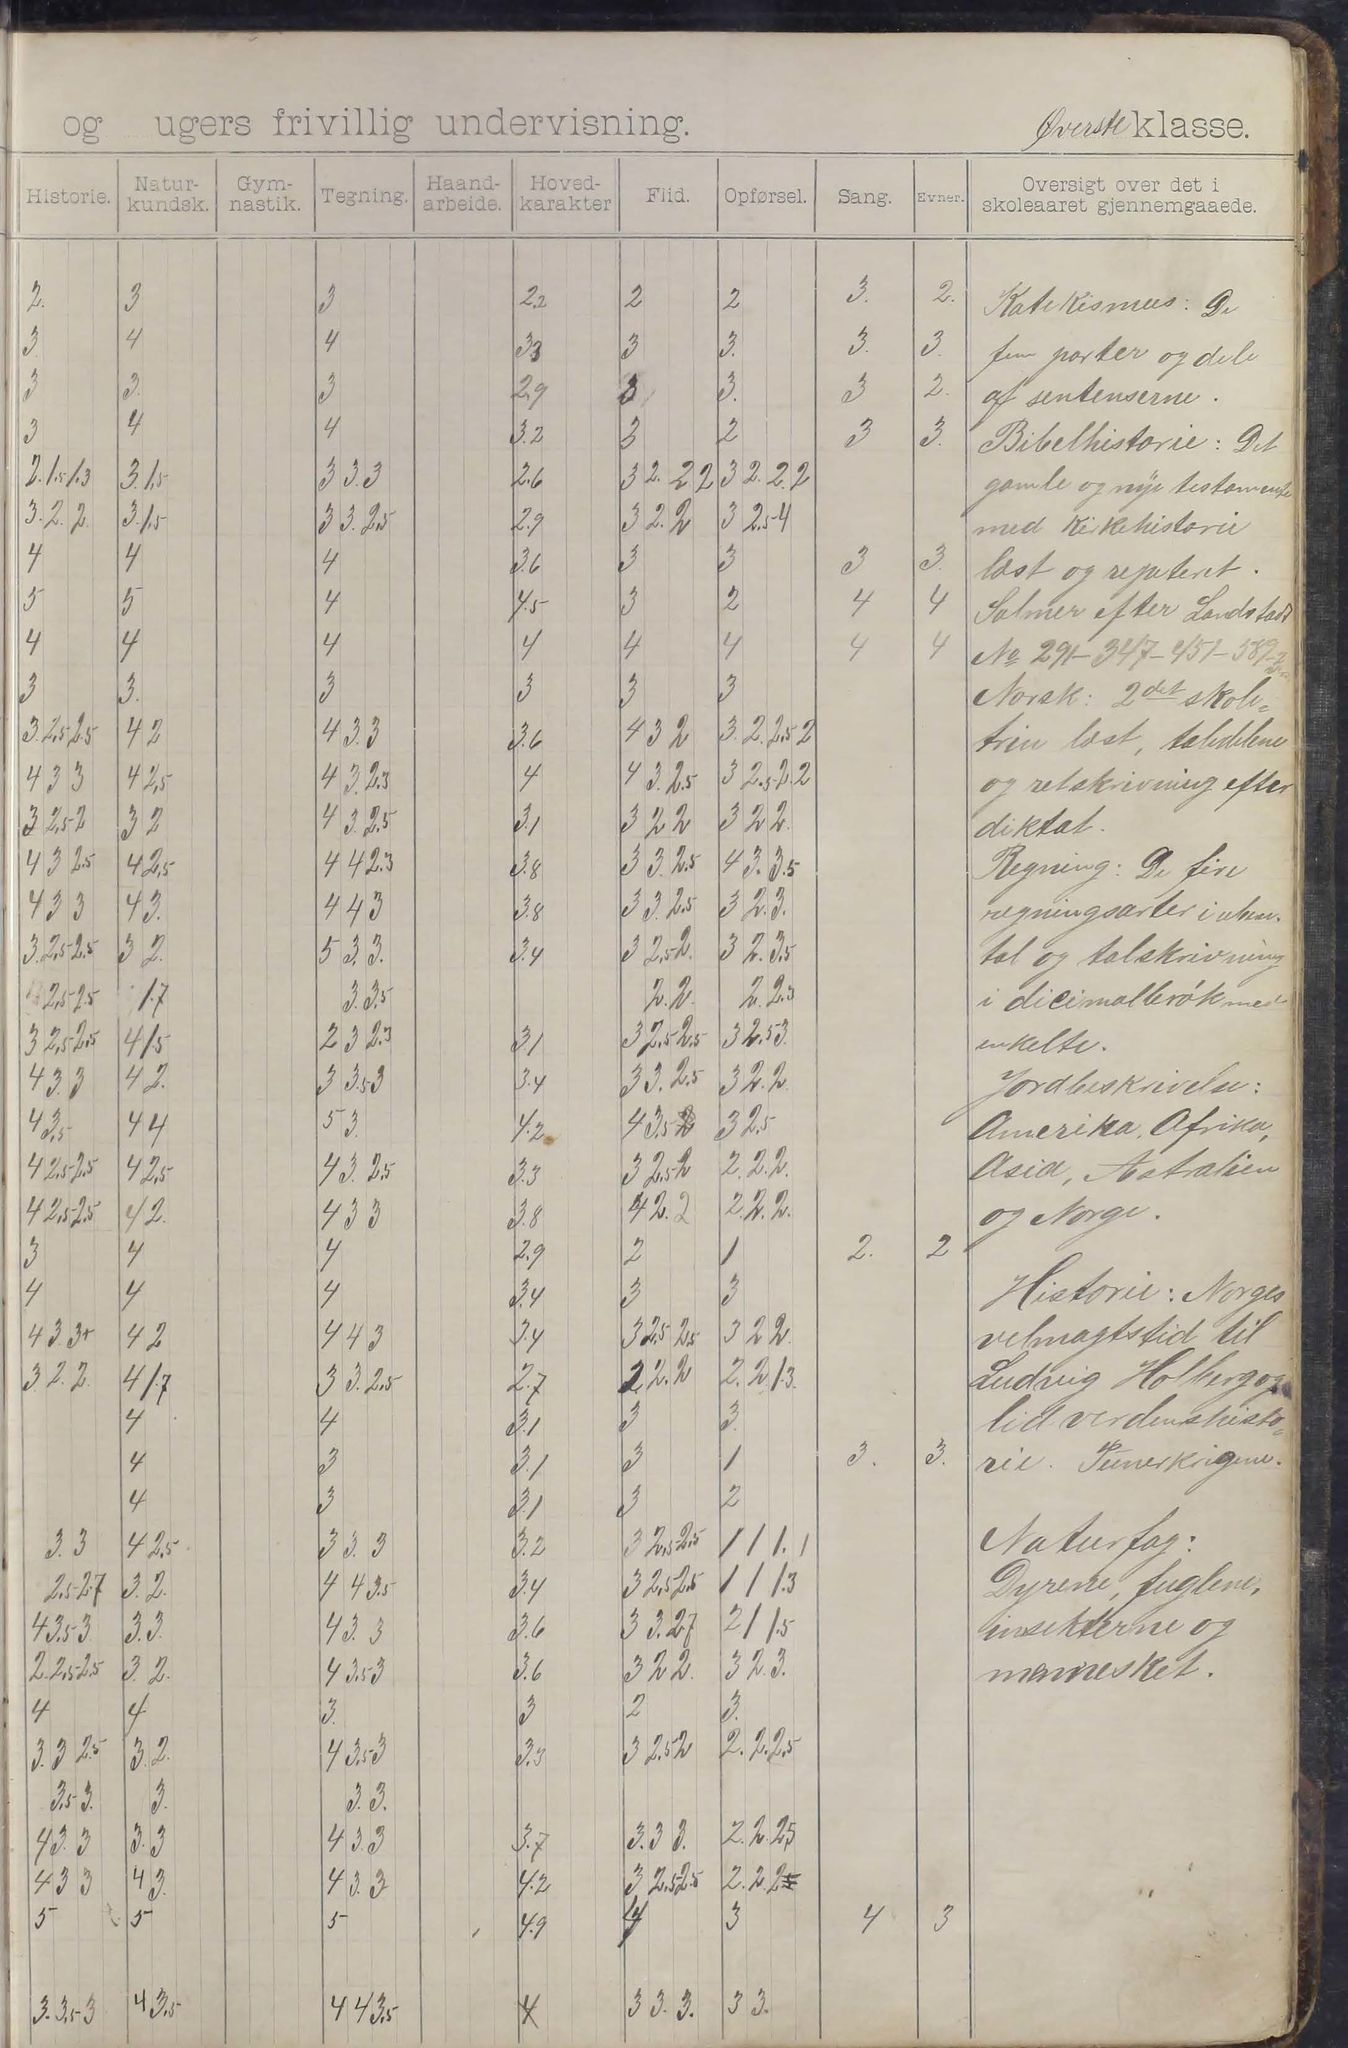 og ugers frivillig undervisning. Øverste klasse.
Historie. Natur-kundsk. Gym-nastik. Tegning. Haand-arbeide. Hoved-karakter Flid. Opførsel. Sang. Evner. Oversigt over det i skoleaaret gjennemgaaede.
2. 3 3 2.2 2 2 3. 2. Katekismus: De
3 4 4 3.3 3 3. 3. 3. fem parter og dele
3 3. 3 2.9 3 3. 3 2. af sentenserne.
3 4 4 3.2 3 2 3 3. Bibelhistorie: Det
2.1.5 1.3 3.1,5 3 3.3 2.6 3 2. 2 2 3 2. 2.2 gamle og nye testamente
3.2.2. 3.1,5 3 3.2,5 2.9 3 2.2 3 2.5 4 med kirkehistorie
4 4 4 3.6 3 3 3 3. læst og repeteret.
5 5 4 4.5 3 2 4 4 Salmer efter Landstad
4 4 4 4 4 4 4 4 No 291-347-451-589-
3 3. 3 3 3 3 Norsk: 2det skole-
3.2,5 2.5 4 2 4 3.3 3.6 4 3 2 3.2.2.5 2 trin læst, taledelene
4 3 3 4 2,5 4 3.2.3 4 4 3.2.5 3 2.5.2.2 og retskrivning efter
3 2,5 2 3 2 4 3.2.5 3.1 3 2 2 3 2 2. diktat.
4 3 2.5 4 2,5 4 4 2.3 3.8 3 3.2.5 4 3.3.5 Regning: De fire
4 3 3 4 3. 4 4 3 3.8 3 3.2.5 3 2.3. regningsarter i
3.2,5 2.5 3 2. 5 3.3. 3.4 3 2,5 2. 3 2.3,5 tal og talskrivning
2,5 2.5 1.7 3.3.5 2.2. 2.2.3 i dicimalbrøk med
3 2,5 2.5 4 1.5 2 3 2.3 3.1 3 2.5 2.5 3 2.5 3. enkelte.
4 3 3 4 2. 3 3.5 3 3.4 3 3.2.5 3 2.2. Jordbeskrivelse:
4 3,5 4 4 5 3. 4.2 4 3.5 2 3 2.5 Amerika, Afrika,
4 2.5 2.5 4 2,5 4 3. 2.5 3.3 3 2.5 2 2.2.2. Asia, Astralien
4 2.5 2.5 4 2. 4 3 3 3.8 4 2.2 2.2.2. og Norge.
3 4 4 2.9 2 1 2. 2
4 4 4 3.4 3 3 Historie: Norges
4 3. 3+ 4 2 4 4 3 3.4 3 2.5 2.5 3 2 2. velmagtstid til
3.2.2. 4 1.7 3 3.2.5 2.7 2 2.2 2.2 1.3. Ludvig Holberg og
4 4 3.1 3 3. lid verdenshisto-
4 3 3.1 3 1 3. 3. rie. Punerkrigene.
4 3 3.1 3 2
3. 3 4 2.5 3 3. 3 3.2 3 2.5 2.5 1 1 1.1 Naturfag:
2.5 2.7 3.2. 4 4 3.5 3.4 3 2.5 2.5 1 1 1.3 Dyrene, fuglene,
4 3.5 3 3.3. 4 3. 3 3.6 3 3.2.7 2 1 1.5 insekterne og
2.2.5 2.5 3. 2. 4 3.5 3 3.6 3 2 2. 3 2.3. mennesket.
4 4 3. 3 2 3.
3.3 2.5 3.2. 4 3.5 3 3.3 3 2.5 2 2.2.2.5
3.5 3. 3. 3.3.
4 3. 3 3.3 4 3.3 3.7 3.3 3. 2.2.2.5
4 3 3 4 3. 4 3.3 4.2 3 2.5 2.5 2.2.2
5 5 5 4.9 4 3 4 3
3.3.5 3 4 3.5 4 4 3.5 4 3 3.3. 3 3.